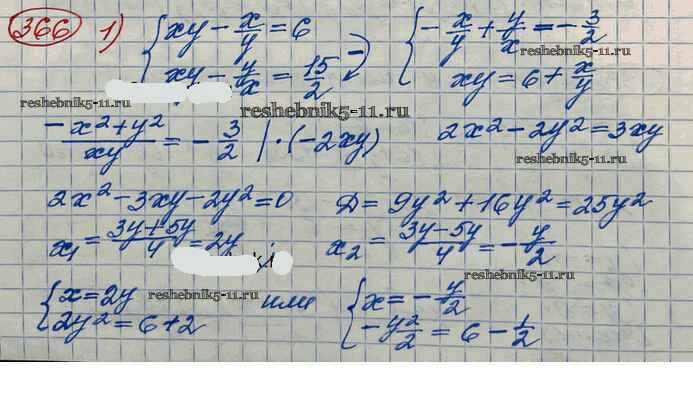 366 1) { xy - x/y = 6 { -x/y + y/x = -3/2
xy - y/x = 15/2 xy = 6 + x/y
reshebnik5-11.ru reshebnik5-11.ru reshebnik5-11.ru
(-x² + y²)/xy = -3/2 | · (-2xy) 2x² - 2y² = 3xy
reshebnik5-11.ru
2x² - 3xy - 2y² = 0 D = 9y² + 16y² = 25y²
x₁ = (3y + 5y)/4 = 2y x₂ = (3y - 5y)/4 = -y/2
reshebnik5-11.ru
{ x = 2y или { x = -y/2
2y² = 6 + 2 -y²/2 = 6 - 1/2
reshebnik5-11.ru reshebnik5-11.ru